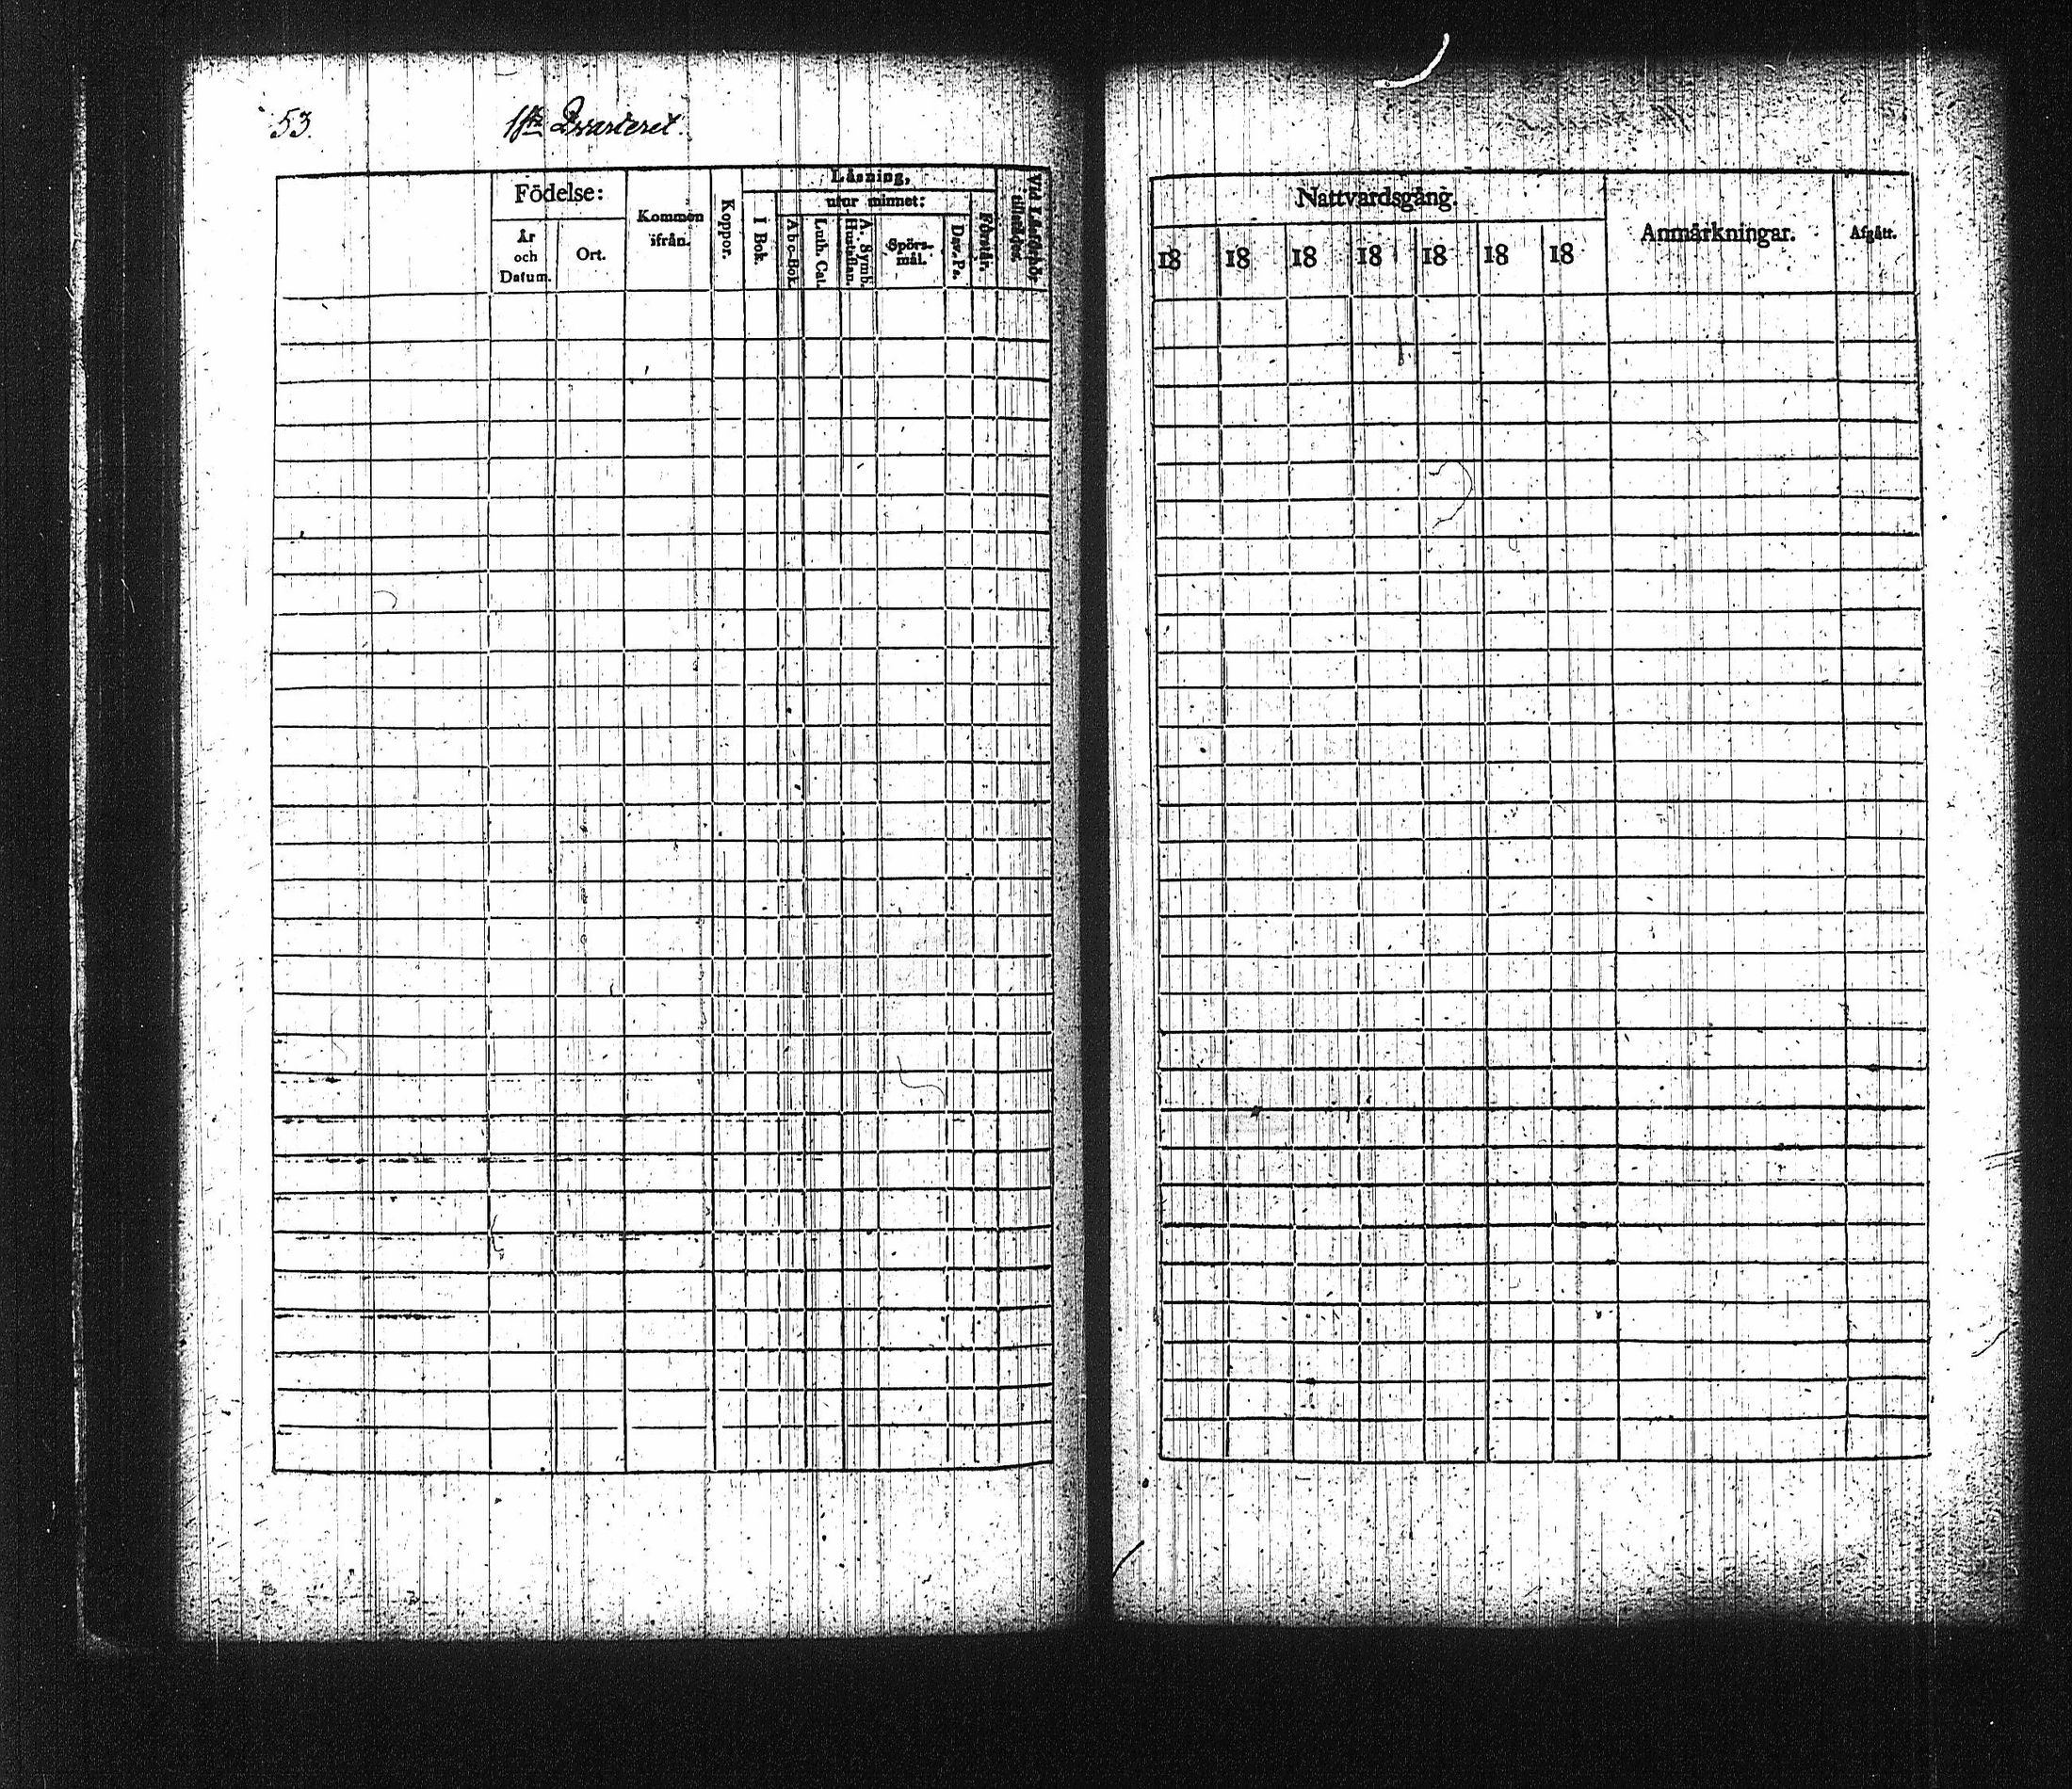 53. 1sta Qvarteret.
Födelse:
År
och
Datum.
Ort.
Kommen
ifrån.
Koppor.
Läsning,
utur minnet:
i Bok.
Abc-Bok.
Luth. Cat.
A. Symb.
Hustaflan.
Spörs-
mål.
Dav. Ps.
Förstår.
Vid Läsförhör
tillstädes.
Nattvardsgång.
18 18 18 18 18 18 18
Anmärkningar.
Afgått.